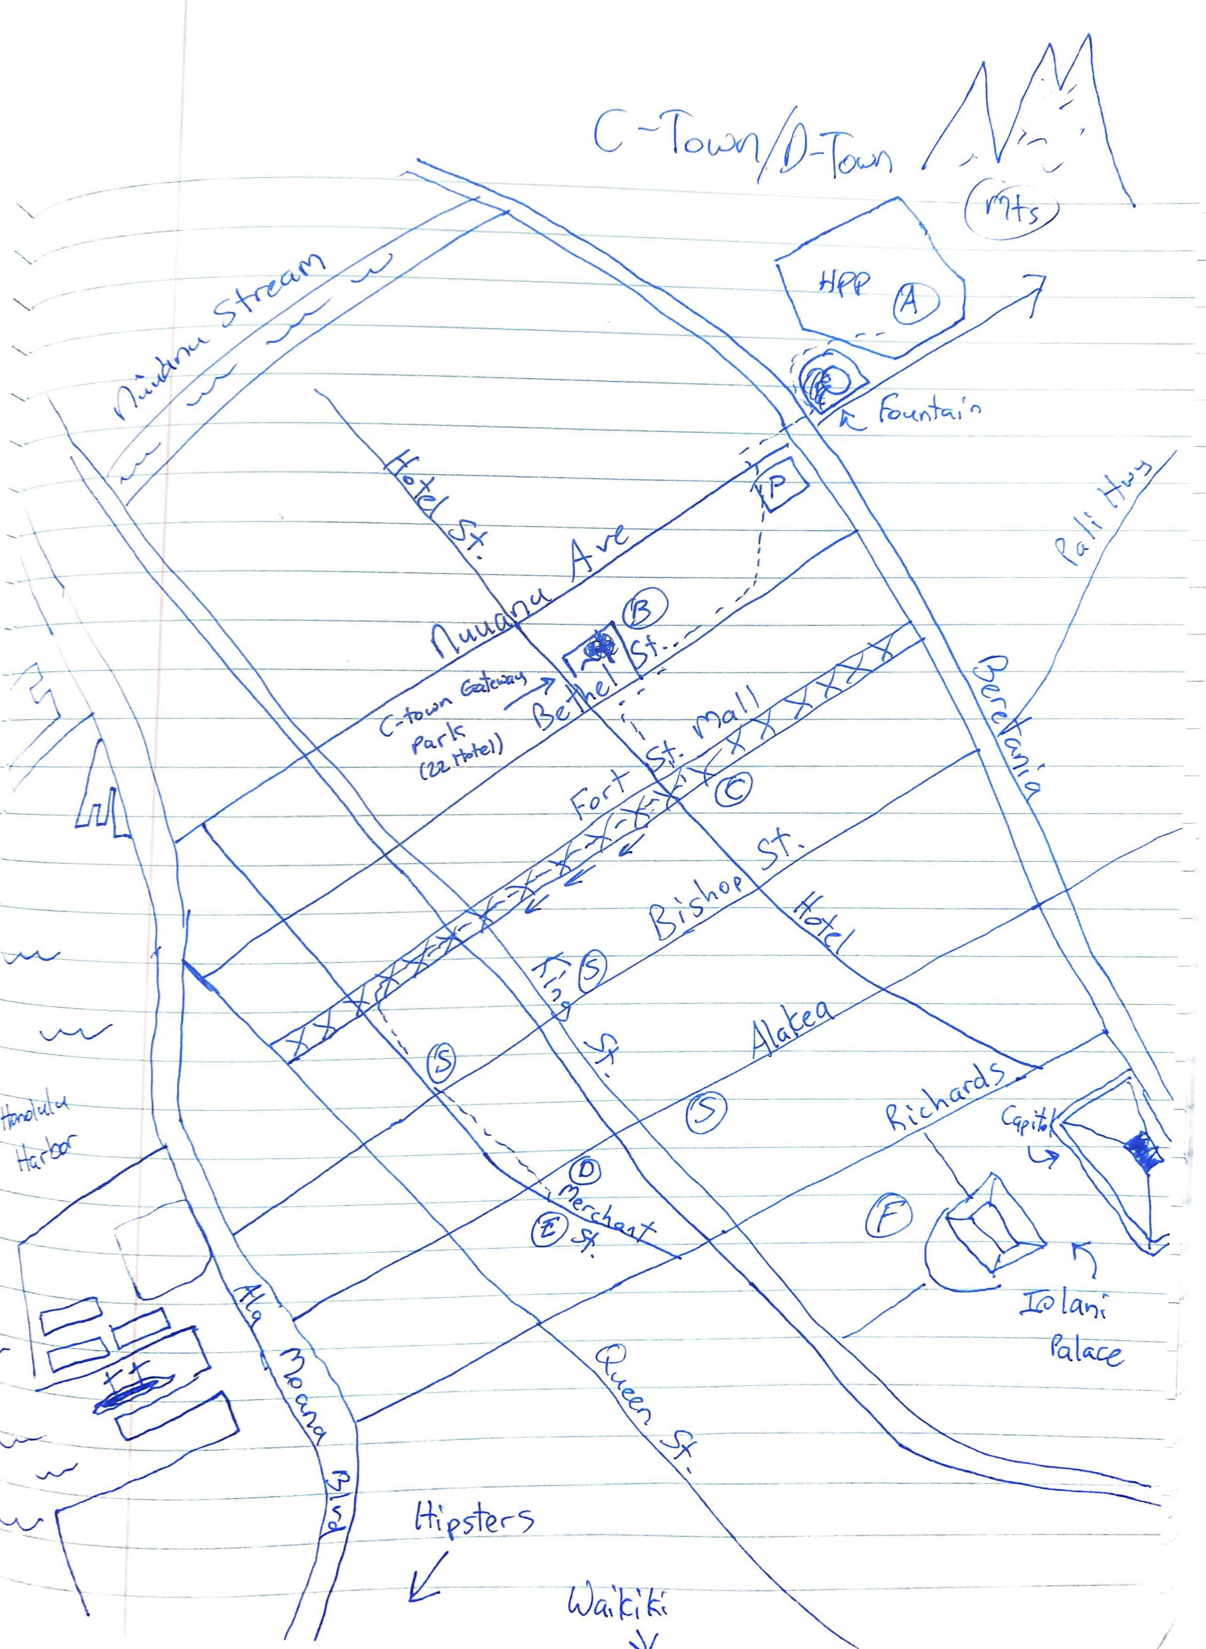 C-Town/D-Town
(mts)
HPP A
Fountain
Nuuanu Stream
Hotel St.
P
Pali Hwy
Nuuanu Ave
B
C-town Gateway
Park
(22 Hotel)
Bethel St.
Fort St. Mall
C
Beretania
Bishop St.
Hotel
King St.
S
Alakea
S
S
Richards
Capitol
Honolulu
Harbor
D
Merchant
St.
E
F
Iolani
Palace
Ala Moana Blvd
Queen St.
Hipsters
Waikiki